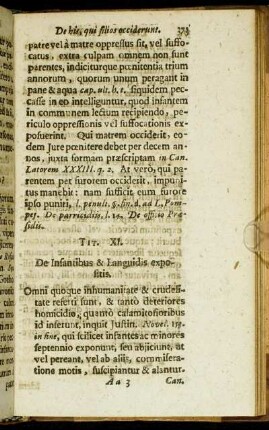 De his, qui filios occiderunt. 373
patre vel à matre oppressus sit, vel suffo-
catus, extra culpam omnem non sunt
parentes, indiciturque pœnitentia trium
annorum, quorum unum peragant in
pane & aqua cap. ult. h. t. siquidem pec-
casse in eo intelliguntur, quod infantem
in communem lectum recipiendo, pe-
riculo oppressionis vel suffocationis ex-
posuerint. Qui matrem occiderit, eo-
dem Jure pœnitere debet per decem an-
nos, juxta formam præscriptam in Can.
Latorem XXXIII. q. 2. At verò, qui pa-
rentem per furorem occiderit, impuni-
tus manebit: nam sufficit eum furore
ipso puniri, l. penult. §. fin. d. ad L. Pom-
pej. De parricidiis. l. 14. De officio Præ-
sidis.
TIT. XI.
De Infantibus & Languidis expo-
sitis.
Omni quoque inhumanitate & crudeli-
tate referti sunt, & tantò deteriores
homicidio, quantò calamitosioribus
id inferunt, inquit Justin. Novel. 153.
in fine, qui scilicet infantes ac minores
septennio exponunt, seu abjiciunt, ut
vel pereant, vel ab aliis, commisera-
tione motis, suscipiantur & alantur.
Aa 3 Can.